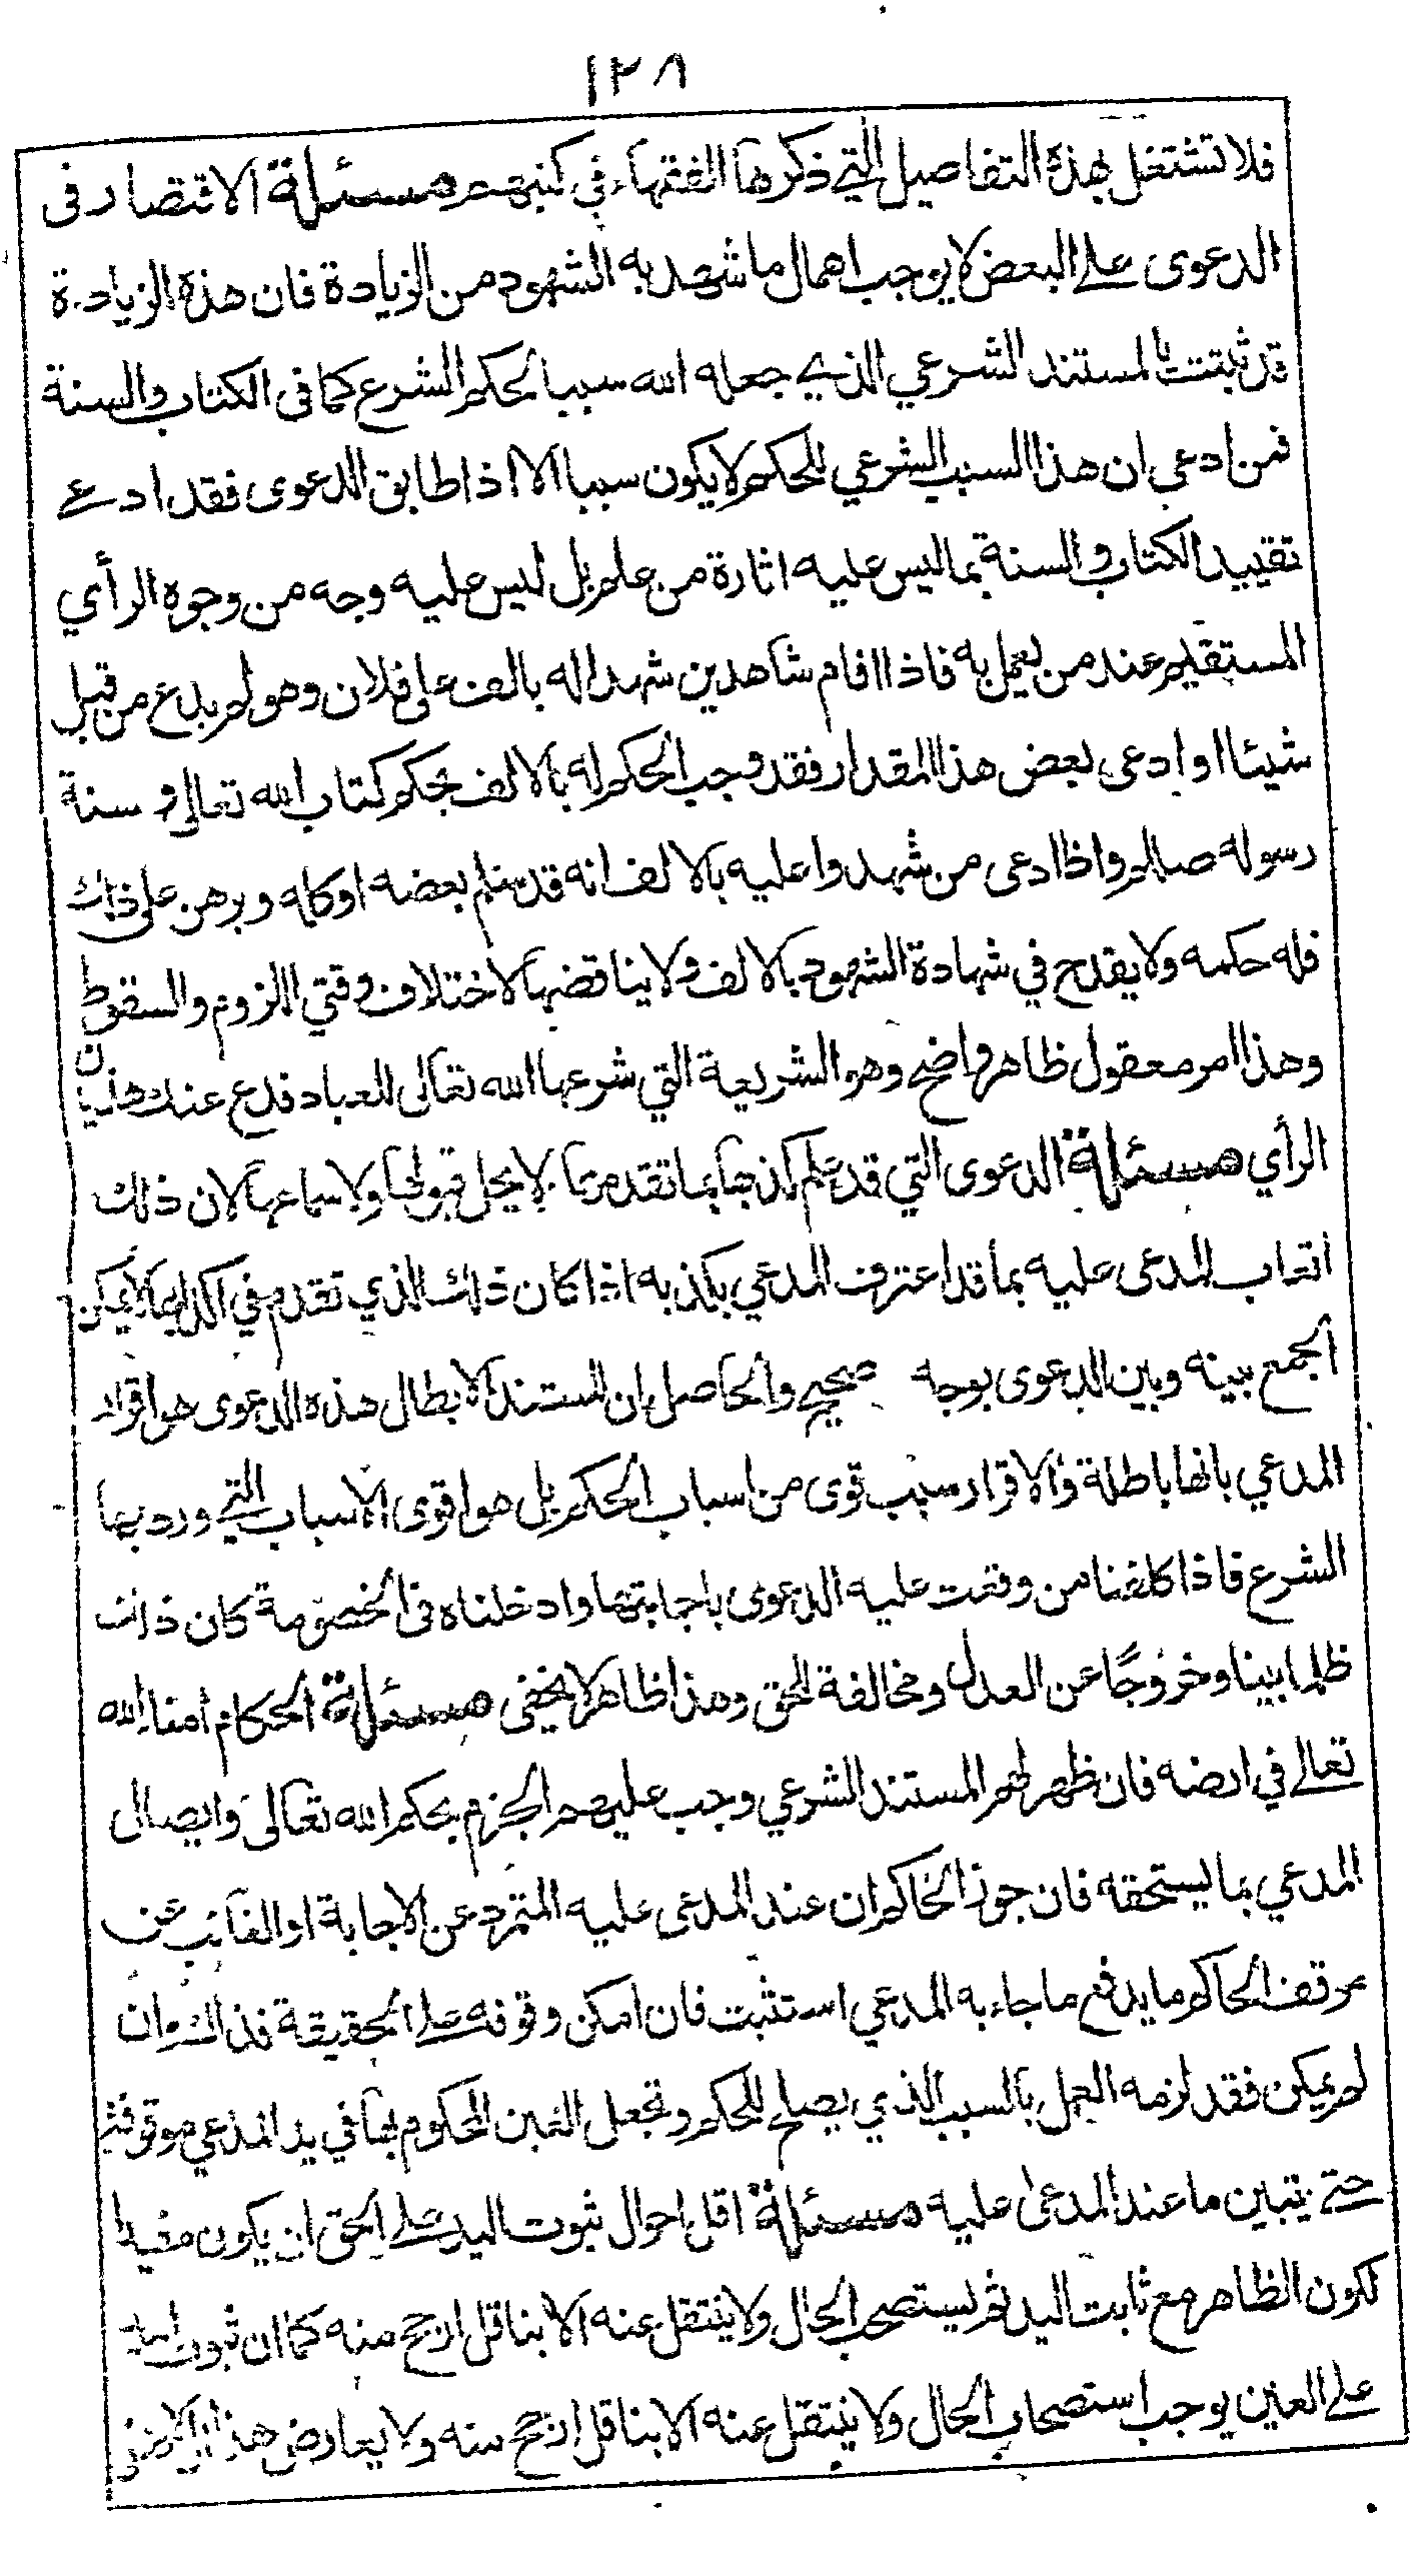 ١٢٨
فلا تشتغل بهذه التفاصيل التي ذكرها الفقهاء في كتبهم مسئلة الاقتصار فى
الدعوى على البعض لا يوجب اهمال ما شهد به الشهود من الزيادة فان هذه الزيادة
قد ثبتت بالمستند الشرعي الذي جعله الله سببا لحكم الشرع كما فى الكتاب والسنة
فمن ادعى ان هذا السبب الشرعي للحكم لا يكون سببا الا اذا طابق الدعوى فقد ادعى
تقييد الكتاب والسنة بما ليس عليه اثارة من علم بل ليس عليه وجه من وجوه الرأي
المستقيم عند من يعمل به فاذا اقام شاهدين شهدا له بالف على فلان وهو لم يدع من قبل
شيئا او ادعى بعض هذا المقدار فقد وجب الحكم له بالالف بحكم كتاب الله تعالى و سنة
رسوله صللم واذا ادعى من شهدوا عليه بالالف انه قد سلم بعضه او كله وبرهن على ذلك
فله حكمه ولا يقدح في شهادة الشهود بالالف ولا يناقضها لاختلاف وقتي اللزوم والسقوط
وهذا امر معقول ظاهر واضح وهو الشريعة التي شرعها الله تعالى للعباد فدع عنك هذيان
الرأي مسئلة الدعوى التي قد علم كذبها بما تقدم منها لا يحل قبولها ولا سماعها لان ذلك
اتعاب للمدعى عليه بما قد اعترف المدعي بكذبه اذا كان ذلك الذي تقدم في اكذابها لا يمكن
الجمع بينه وبين الدعوى بوجه صحيح والحاصل ان المستند لابطال هذه الدعوى هو اقرار
المدعي بانها باطلة والاقرار سبب قوى من اسباب الحكم بل هو اقوى الاسباب التي ورد بها
الشرع فاذا كلفنا من وقعت عليه الدعوى باجابتها وادخلناه فى الخصومة كان ذلك
ظلما بينا وخروجًا عن العدل ومخالفة للحق وهذا ظاهر لا يخفى مسئلة الحكام امناء الله
تعالى في ارضه فان ظهر لهم المستند الشرعي وجب عليهم الجزم بحكم الله تعالى وايصال
المدعي بما يستحقه فان جوز الحاكم ان عند المدعى عليه المتمرد عن الاجابة او الغائب عن
موقف الحاكم ما يدفع ما جاء به المدعي استثبت فان امكن وقوفه على الحقيقة فذاك وان
لم يمكن فقد لزمه العمل بالسبب الذي يصلح للحكم وتجعل العين المحكوم بها في يد المدعي موقوفة
حتى يتبين ما عند المدعى عليه مسئلة اقل احوال ثبوت اليد على الحق ان يكون مفيدا
لكون الظاهر مع ثابت اليد ثم يستصحب الحال ولا ينتقل عنه الا بناقل ارجح منه كما ان ثبوت اليد
على العين يوجب استصحاب الحال ولا ينتقل عنه الا بناقل ارجح منه ولا يعارض هذا